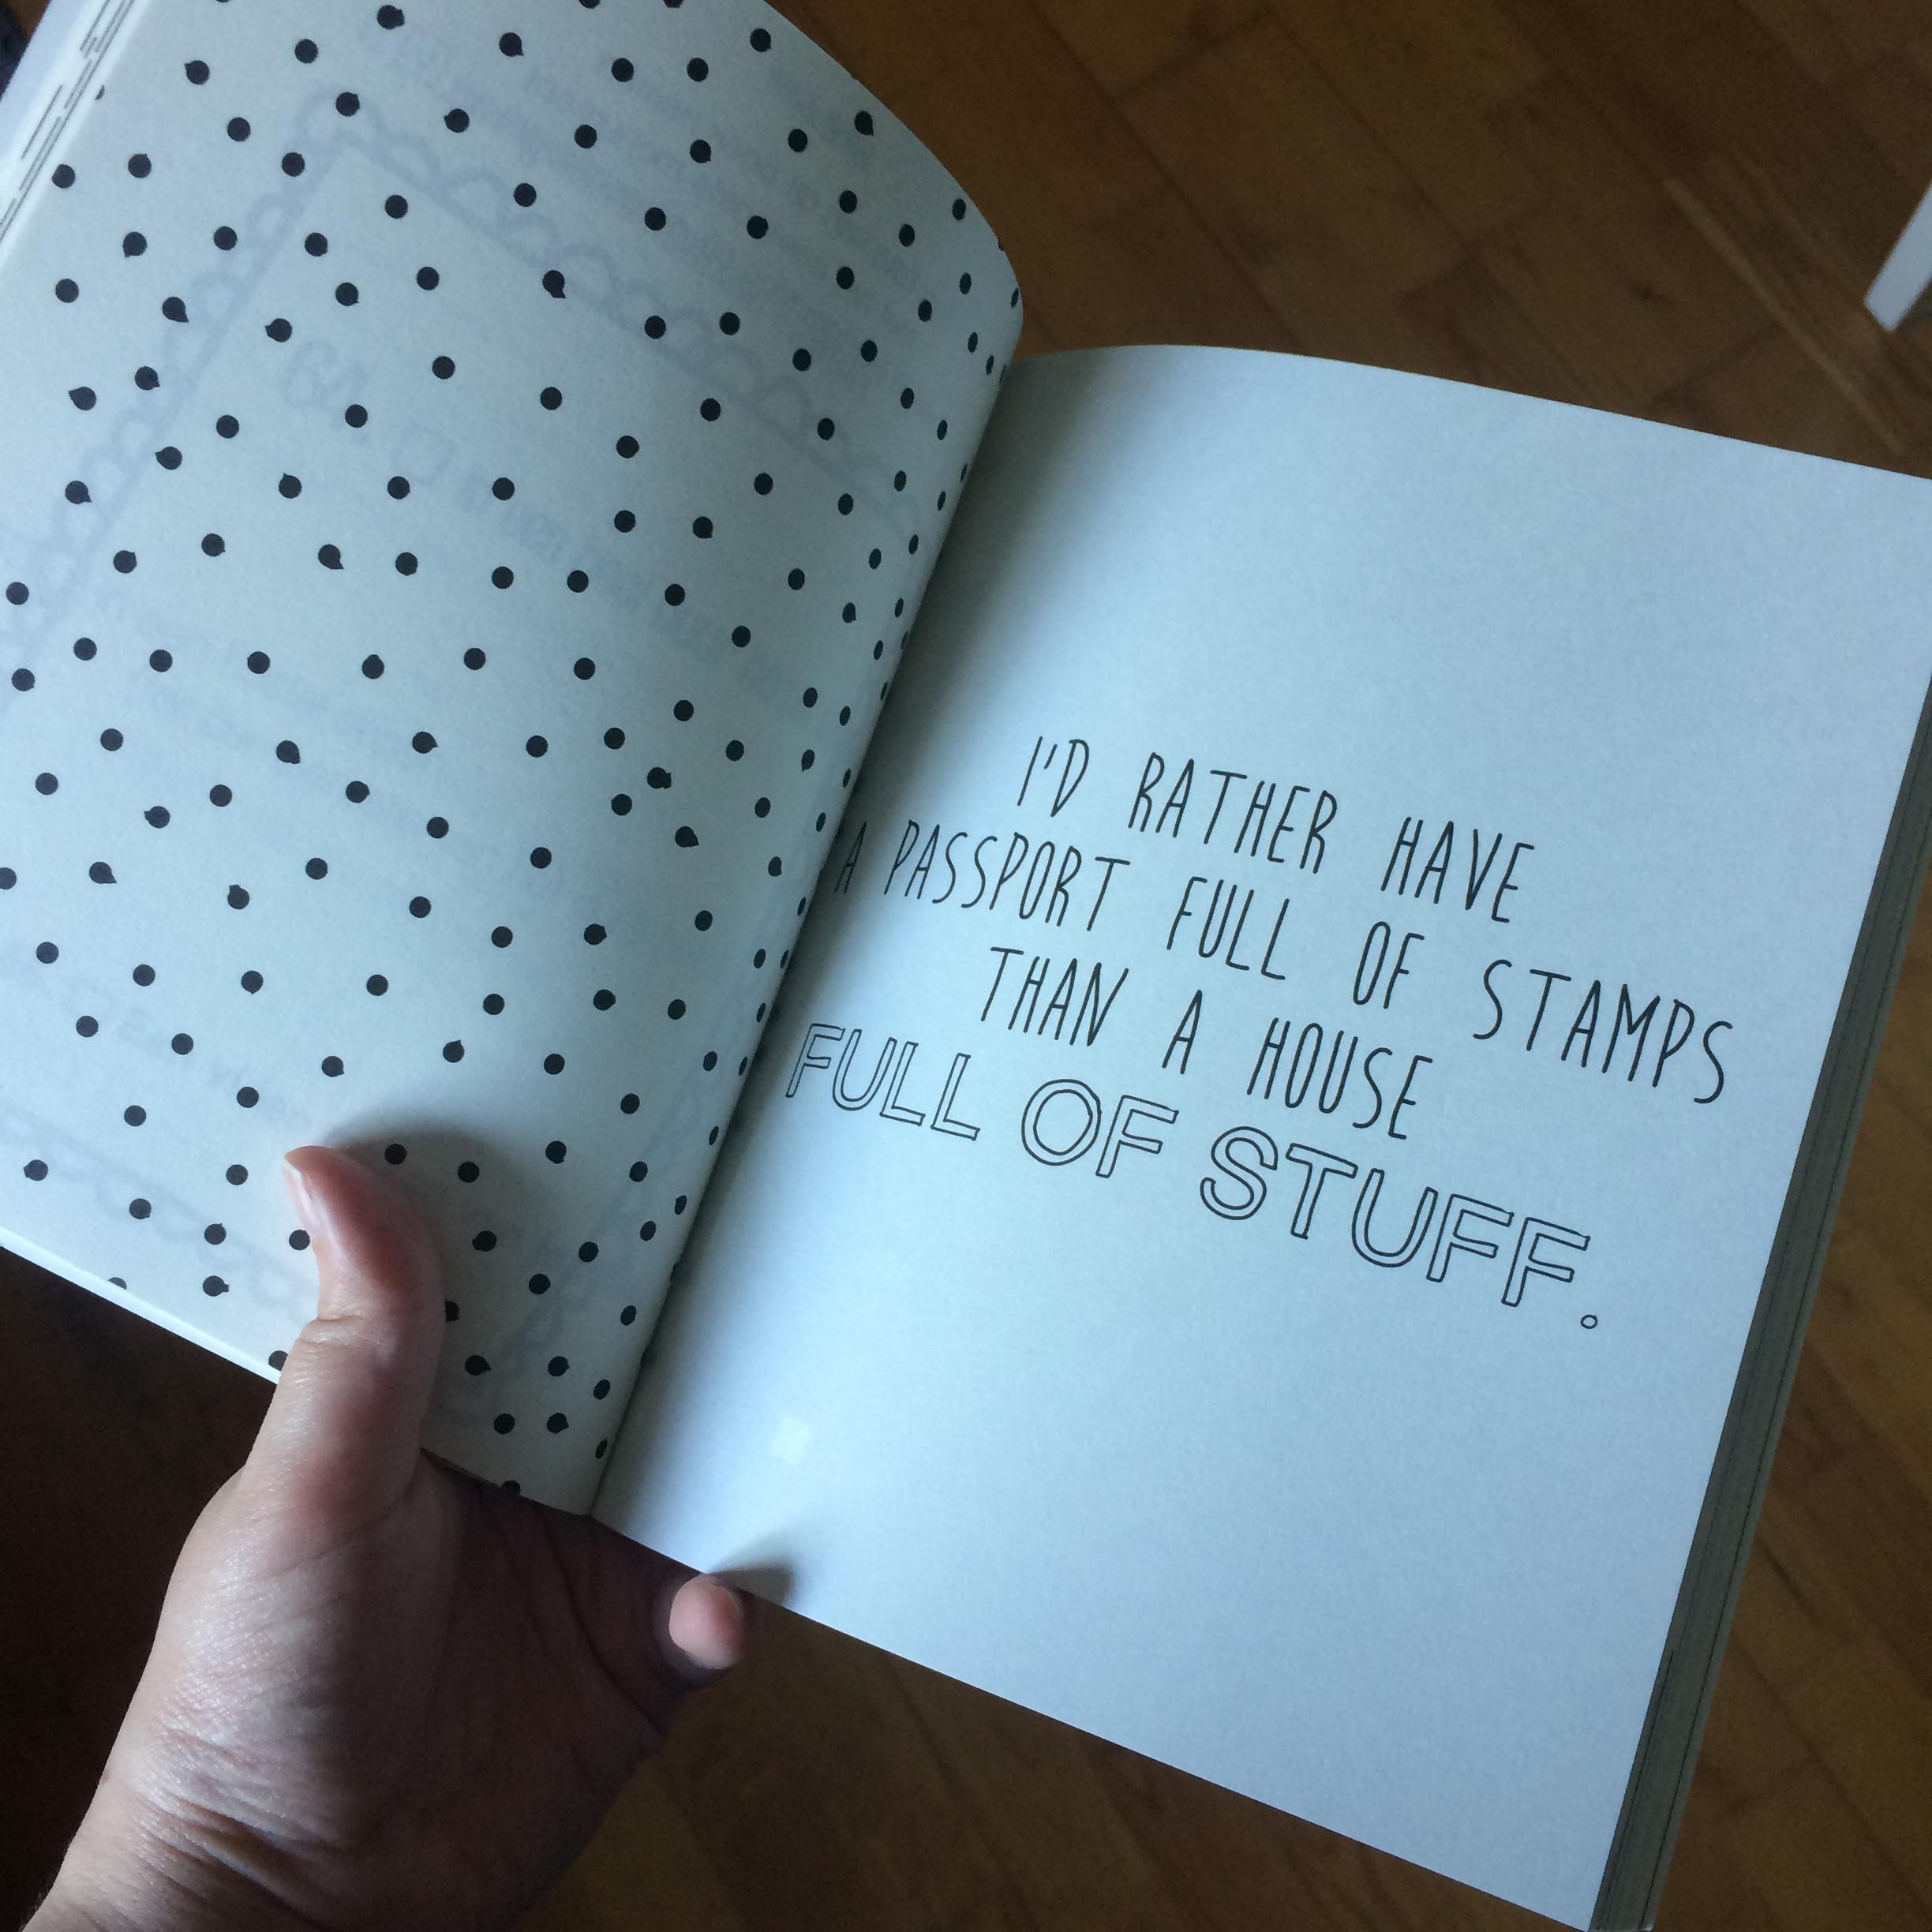 I'D RATHER HAVE
A PASSPORT FULL OF STAMPS
THAN A HOUSE
FULL OF STUFF.